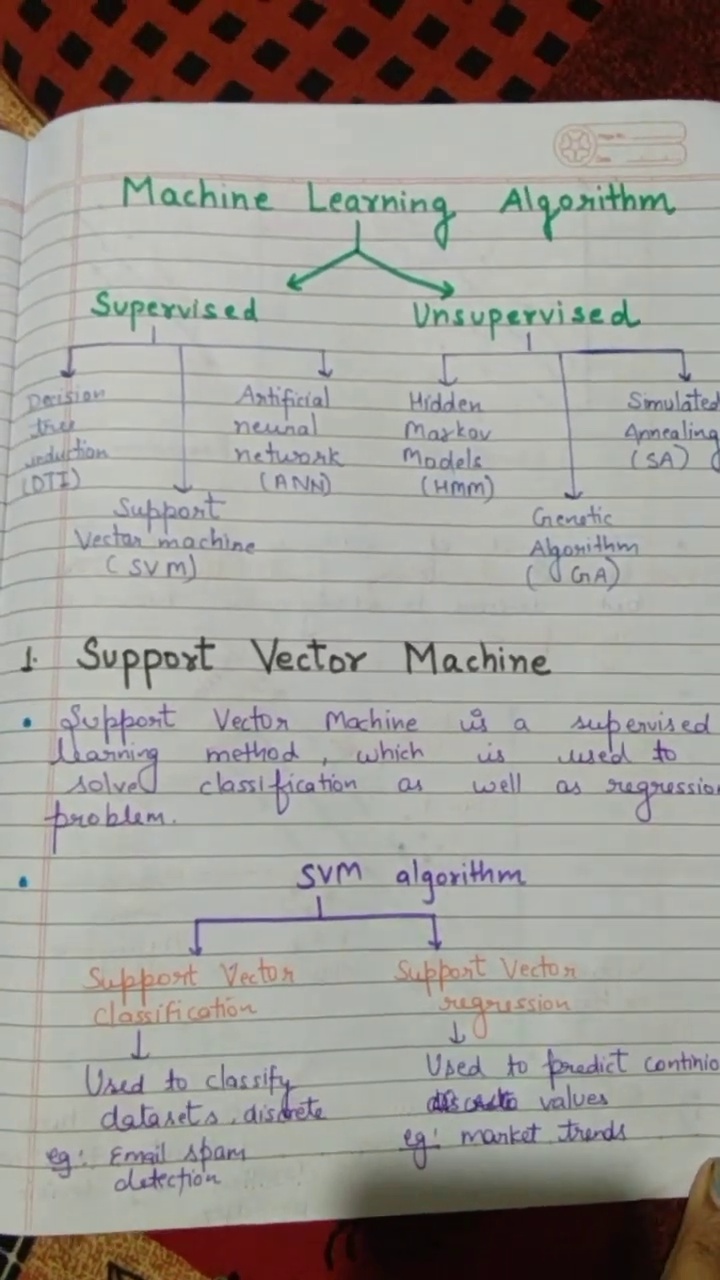 Machine Learning Algorithm
Supervised
Unsupervised
Decision
tree
induction
(DTI)
Support
Vector machine
(SVM)
Artificial
neural
network
(ANN)
Hidden
Markov
Models
(HMM)
Genetic
Algorithm
(GA)
Simulated
Annealing
(SA)
1. Support Vector Machine
• Support Vector Machine is a supervised
learning method, which is used to
solve classification as well as regressio
problem.
• SVM algorithm
Support Vector
classification
Used to classify
datasets, discrete
eg: Email spam
detection
Support Vector
regression
Used to predict continio
values
eg: market trends